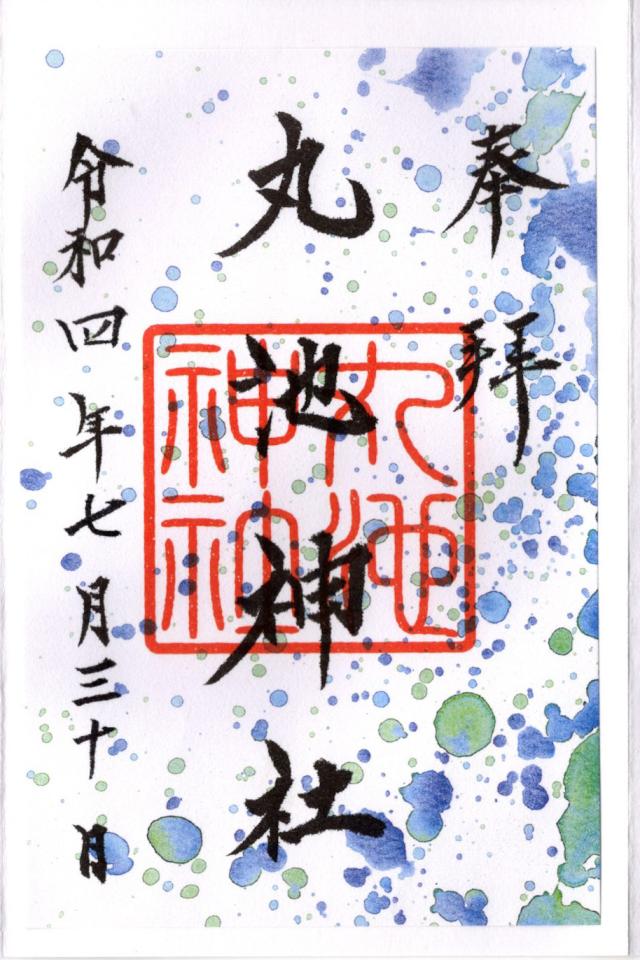 奉拝
丸池神社
丸池
神社
令和四年七月三十日